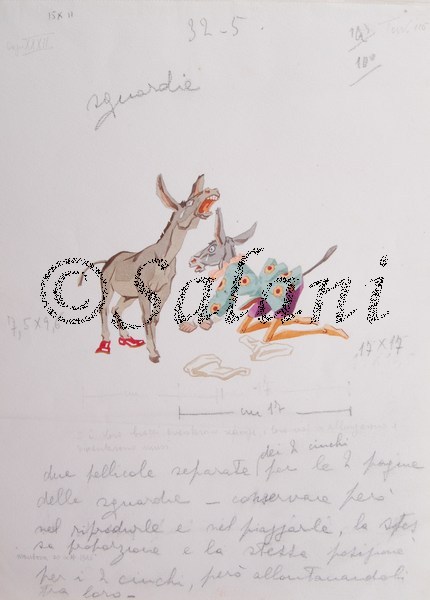 15 x 11
32-5.
100
sguardie
©Salani
7,5x9,8
17x17
cm 17
dei 2 ciuchi
due pellicole separate per le 2 pagine
delle sguardie - conservare però
nel riprodurle e nel piazzarle, la stes
sa proporzione e la stessa posizione
per i 2 ciuchi, però allontanandoli
tra loro -